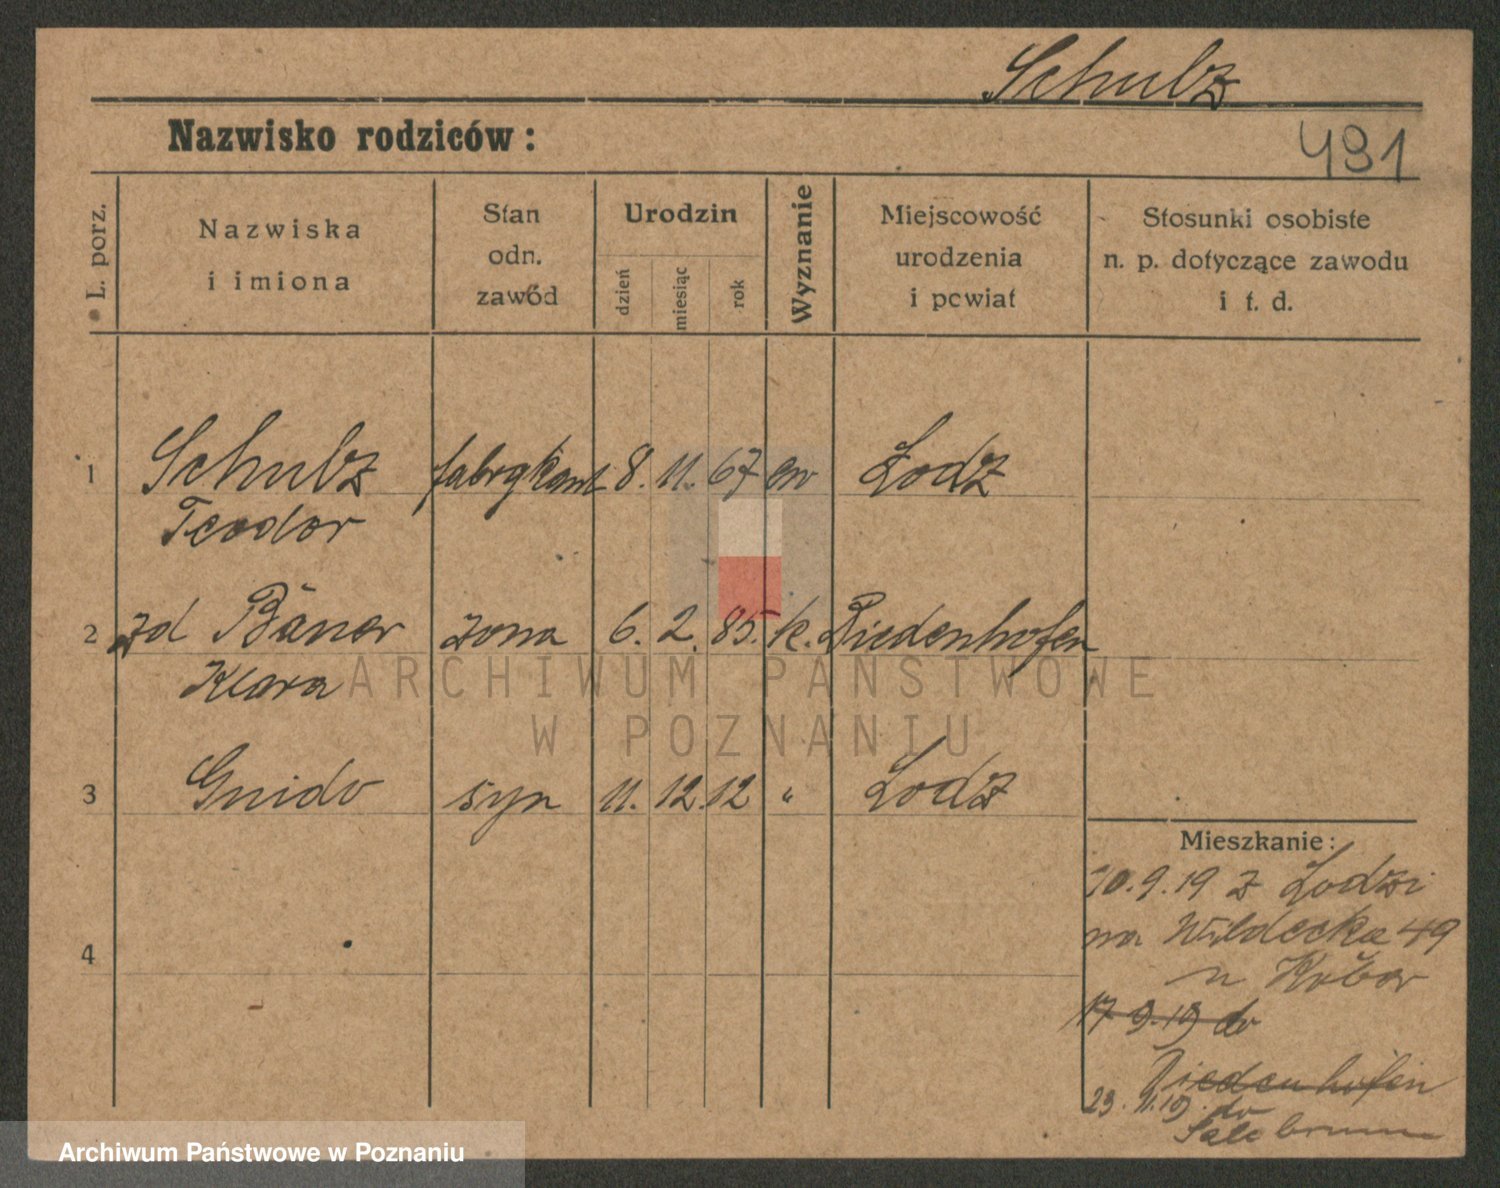 Schulz
Nazwisko rodziców:
491
L. porz.
Nazwiska
i imiona
Stan
odn.
zawód
Urodzin
dzień
miesiąc
rok
Wyznanie
Miejscowość
urodzenia
i powiat
Stosunki osobiste
n. p. dotyczące zawodu
i t. d.
1 Schulz fabrykant 8. 11. 67 ew Łodz
Teodor
2 zd Bäner żona 6. 2. 85. k. Diedenhofen
Klara
ARCHIWUM PAŃSTWOWE
W POZNANIU
3 Gnido syn 11. 12. 12 " Łodz
Mieszkanie:
10.9.19 z Łodzi
na Wildecka 49
u
4
17 9.19 do
Diedenhofen
23. 9.19. do
Salzbrunn
Archiwum Państwowe w Poznaniu